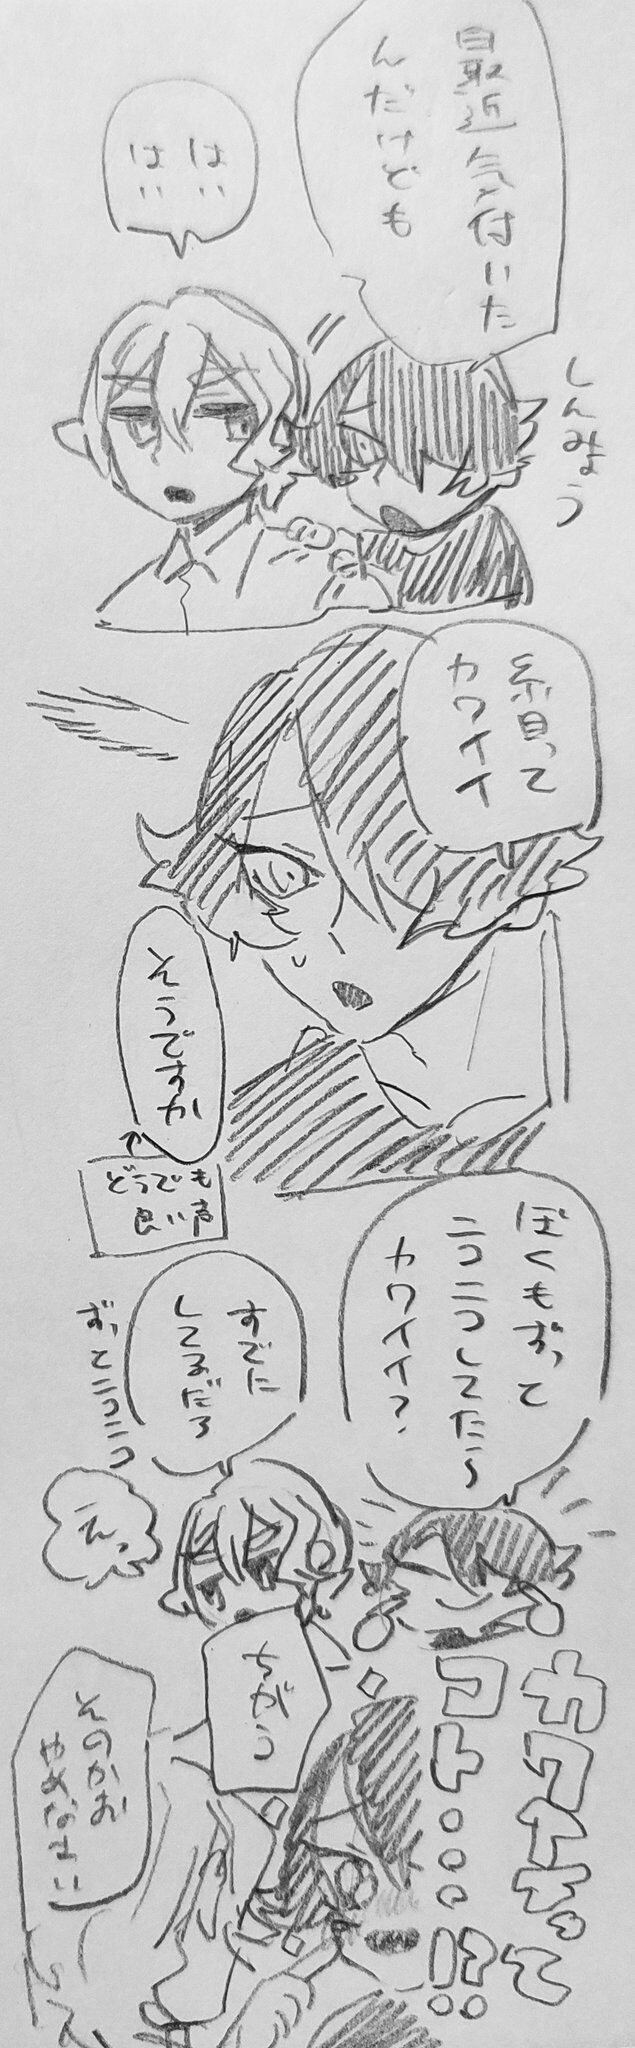 最近気付いた
んだけども
はい
はい
しんみょう
糸貝って
カワイイ
そうですか
どうでも
良い声
ぼくもずって
ニコニコしてたら
カワイイ?
すでに
してるだろ
ずっとニコニコ
えっ
カワイイッて
コト…!?
ちがう
そのかお
やめなさい